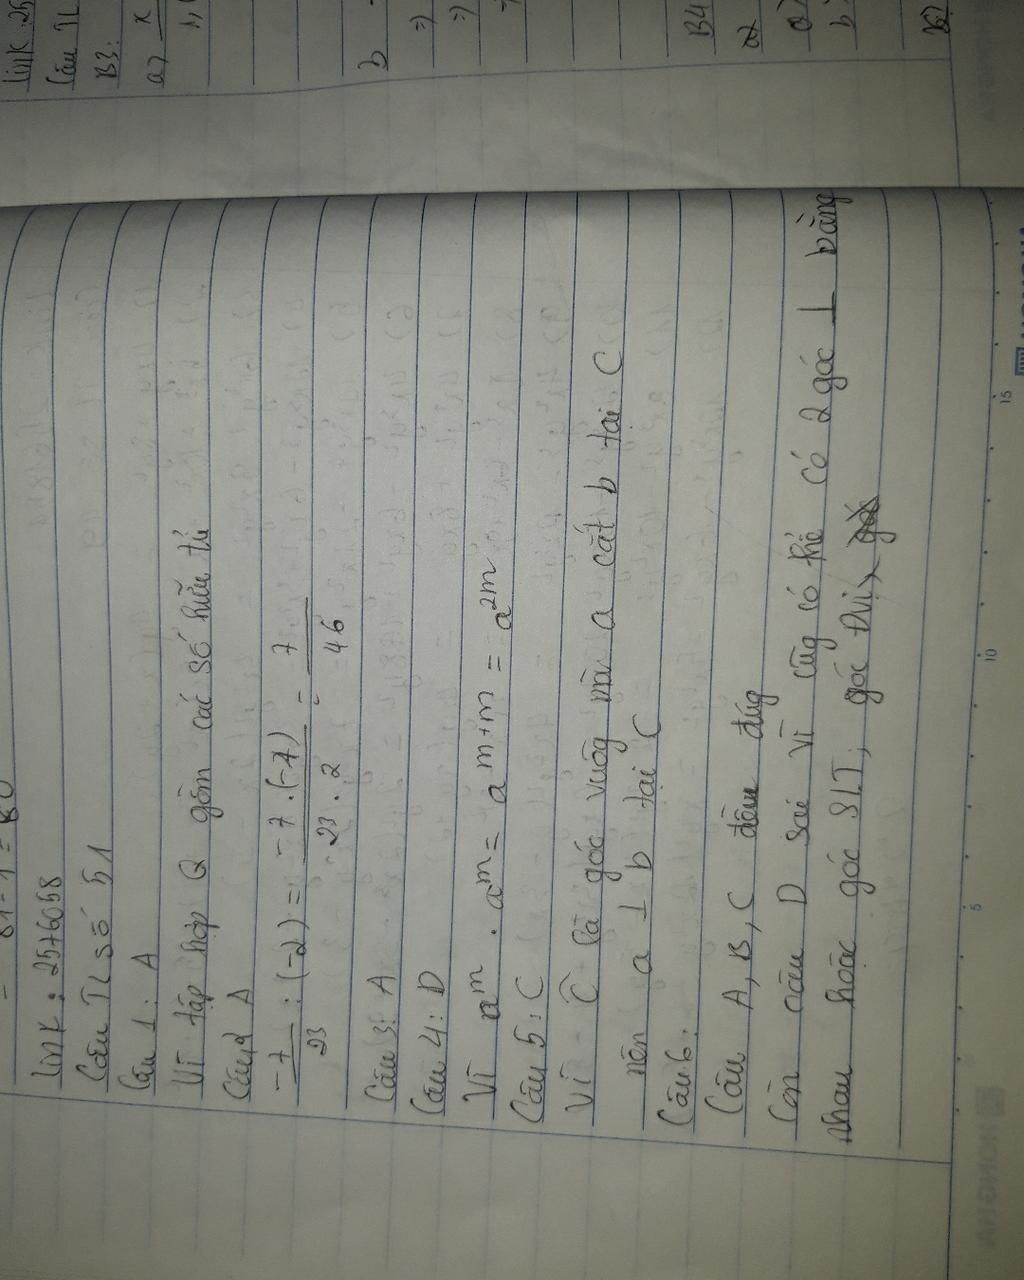 81 - 1 = 80
link: 2576058
Câu TL số 51
Câu 1: A
Vì tập hợp Q gồm các số hữu tỉ
Câu 2 A
-7/23 : (-2) = -7.(-7)/23.2 = 7/46
Câu 3: A
Câu 4: D
Vì a^m . a^m = a^{m+m} = a^{2m}
Câu 5: C
Vì Ĉ là góc vuông mà a cắt b tại C
nên a ⊥ b tại C
Câu 6:
Câu A, B, C đều đúg
Còn câu D sai vì cũg có thể có 2 góc ⊥ bằng
nhau hoặc góc SLT, góc ĐVị,
link 25
Câu TL
B3:
a) x
b
=>
=>
B4
a)
b
15
10
5
HONG HA